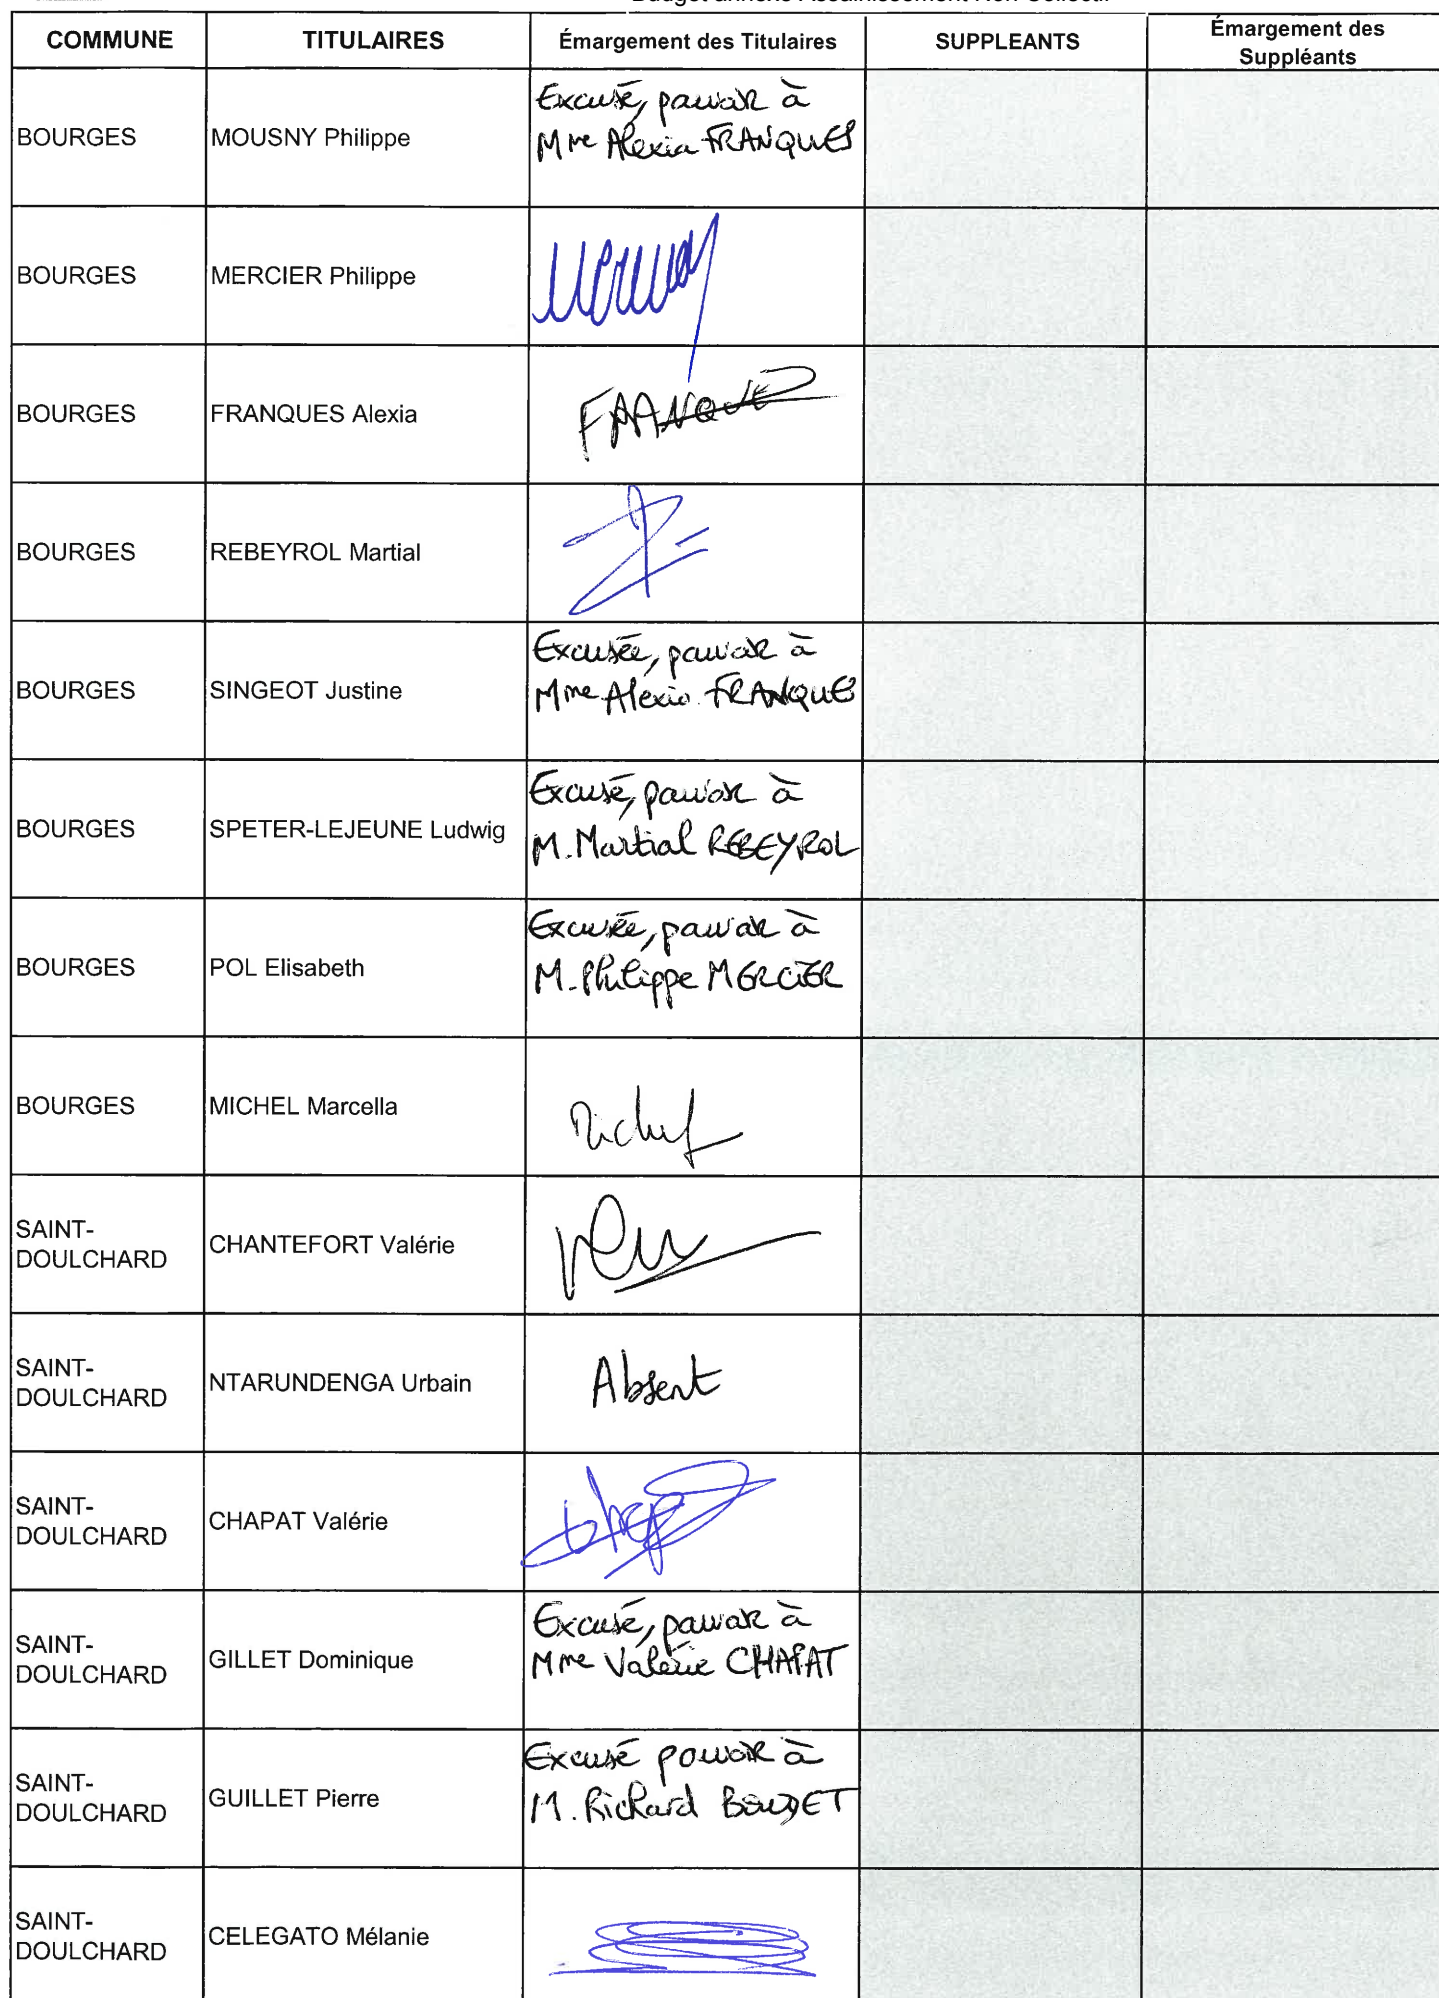 Budget annexe Assainissement Non Collectif
COMMUNE TITULAIRES Émargement des Titulaires SUPPLEANTS Émargement des
Suppléants
BOURGES MOUSNY Philippe Excusé, pouvoir à
Mme Alexia FRANQUES
BOURGES MERCIER Philippe
BOURGES FRANQUES Alexia FRANQUES
BOURGES REBEYROL Martial
BOURGES SINGEOT Justine Excusée, pouvoir à
Mme Alexia FRANQUES
BOURGES SPETER-LEJEUNE Ludwig Excusé, pouvoir à
M. Martial REBEYROL
BOURGES POL Elisabeth Excusée, pouvoir à
M. Philippe MERCIER
BOURGES MICHEL Marcella Michel
SAINT-
DOULCHARD CHANTEFORT Valérie
SAINT-
DOULCHARD NTARUNDENGA Urbain Absent
SAINT-
DOULCHARD CHAPAT Valérie
SAINT-
DOULCHARD GILLET Dominique Excusé, pouvoir à
Mme Valérie CHAPAT
SAINT-
DOULCHARD GUILLET Pierre Excusé pouvoir à
M. Richard BOUDET
SAINT-
DOULCHARD CELEGATO Mélanie